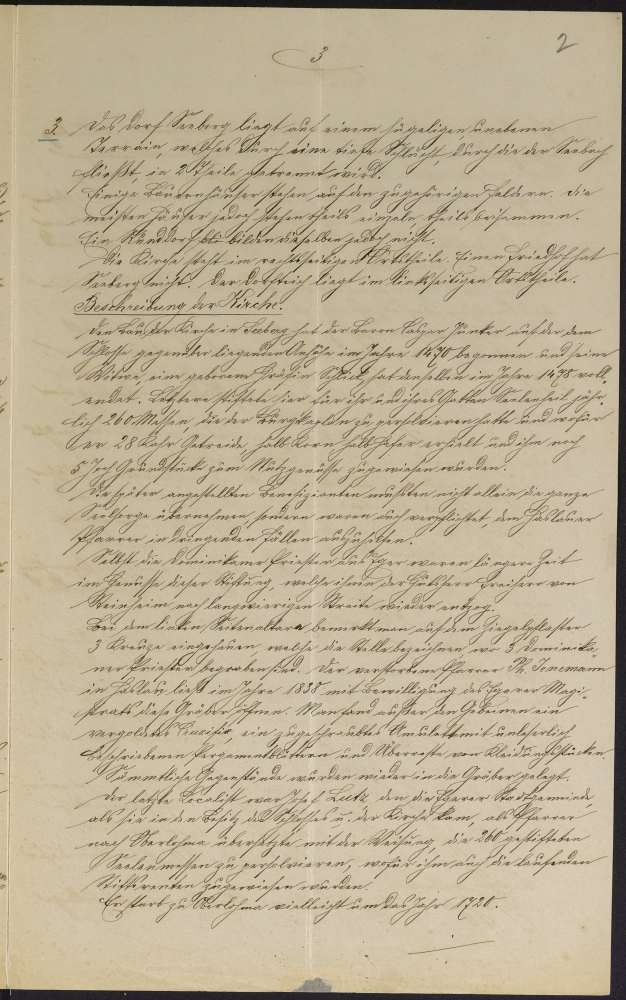 3
2
3. Das Dorf Seeberg liegt auf einem hügeligen unebenen
Terrain, welches durch eine tiefe Schlucht, durch die der Seebach
fließt, in 2 Theile getrennt wird.
Einige Bauernhäuser stehen auf den zugehörigen Feldern. Die
meisten Häuser jedoch stehen theils einzeln, theils beisammen.
Ein Runddorf bilden dieselben jedoch nicht.
Die Kirche steht im rechtsseitigen Ortstheile. Einen Friedhof hat
Seeberg nicht. Der Dorfteich liegt im linksseitigen Ortstheile.
Beschreibung der Kirche.
Den Bau der Kirche in Seeberg hat der Baron Caspar Junker auf der dem
Schlosse gegenüber liegenden Anhöhe im Jahre 1470 begonnen und seine
Witwe, eine geborene Gräfin Schlick, hat denselben im Jahre 1478 voll-
endet. Letztere stiftete hier für ihr und ihres Gatten Seelenheil jähr-
lich 260 Messen, die der Burgkaplan zu persolvieren hatte und wofür
er 28 Kahr Getreide, halb Korn halb Hafer erhielt und ihm noch
5 Joch Grundstücke zum Nutzgenusse zugewiesen wurden.
Die später angestellten Benefizianten mußten nicht allein die ganze
Seelsorge übernehmen, sondern waren auch verpflichtet, dem Haslauer
Pfarrer in dringenden Fällen auszuhelfen.
Selbst die Dominikaner Priester aus Eger waren längere Zeit
im Genusse dieser Stiftung, welche ihnen der Gutsherr Freiherr von
Steinheim nach langwierigem Streite wieder entzog.
Bei dem linken Seitenaltare bemerkt man auf dem Ziegelpflaster
3 Kreuze eingehauen, welche die Stelle bezeichnen, wo 3 Dominika-
ner Priester begraben sind. Der verstorbene Pfarrer Ph. Tinemann
in Haslau ließ im Jahre 1838 mit Bewilligung des Egerer Magi-
strats diese Gräber öffnen. Man fand außer den Gebeinen ein
vergoldetes Crucifix, ein zugeschraubtes Amulett mit unleserlich
beschriebenen Pergamentblättern und Überreste von Kleidungsstücken.
Sämmtliche Gegenstände wurden wieder in die Gräber gelegt.
Der letzte Localist war Josef Lutz, den die Egerer Stadtgemeinde,
als sie in den Besitz des Schlosses u. der Kirche kam, als Pfarrer
nach Oberlohma übersetzte mit der Weisung, die 260 gestifteten
Seelenmessen zu persolvieren, wofür ihm auch die laufenden
Stiftsrenten zugewiesen wurden.
Er starb zu Oberlohma vielleicht um das Jahr 1720.